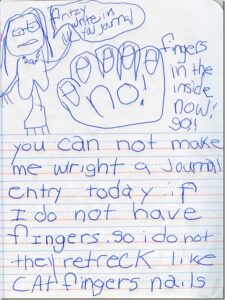 Antzy
write in
your journal
no!
fingers
in the
inside
now!
you can not make
me wright a Journal
entry today if
I do not have
fingers. so i do not
they retreck like
CAt fingers nails